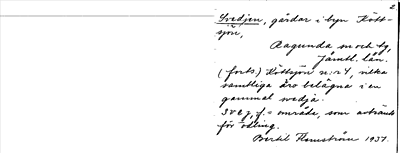 2
Svedjen, gårdar i byn Kött-
sjön,
Ragunda sn och tg,
Jämtl. län.
(forts) Köttsjön n:r 4, vilka
samtliga äro belägna i en
gammal svedja.
svej, f. = område, som avbränts
för odling.
Bertil Flemström 1937.